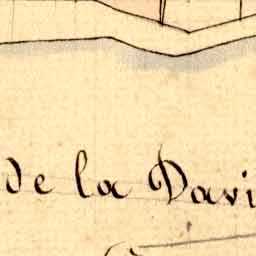 de la Davi